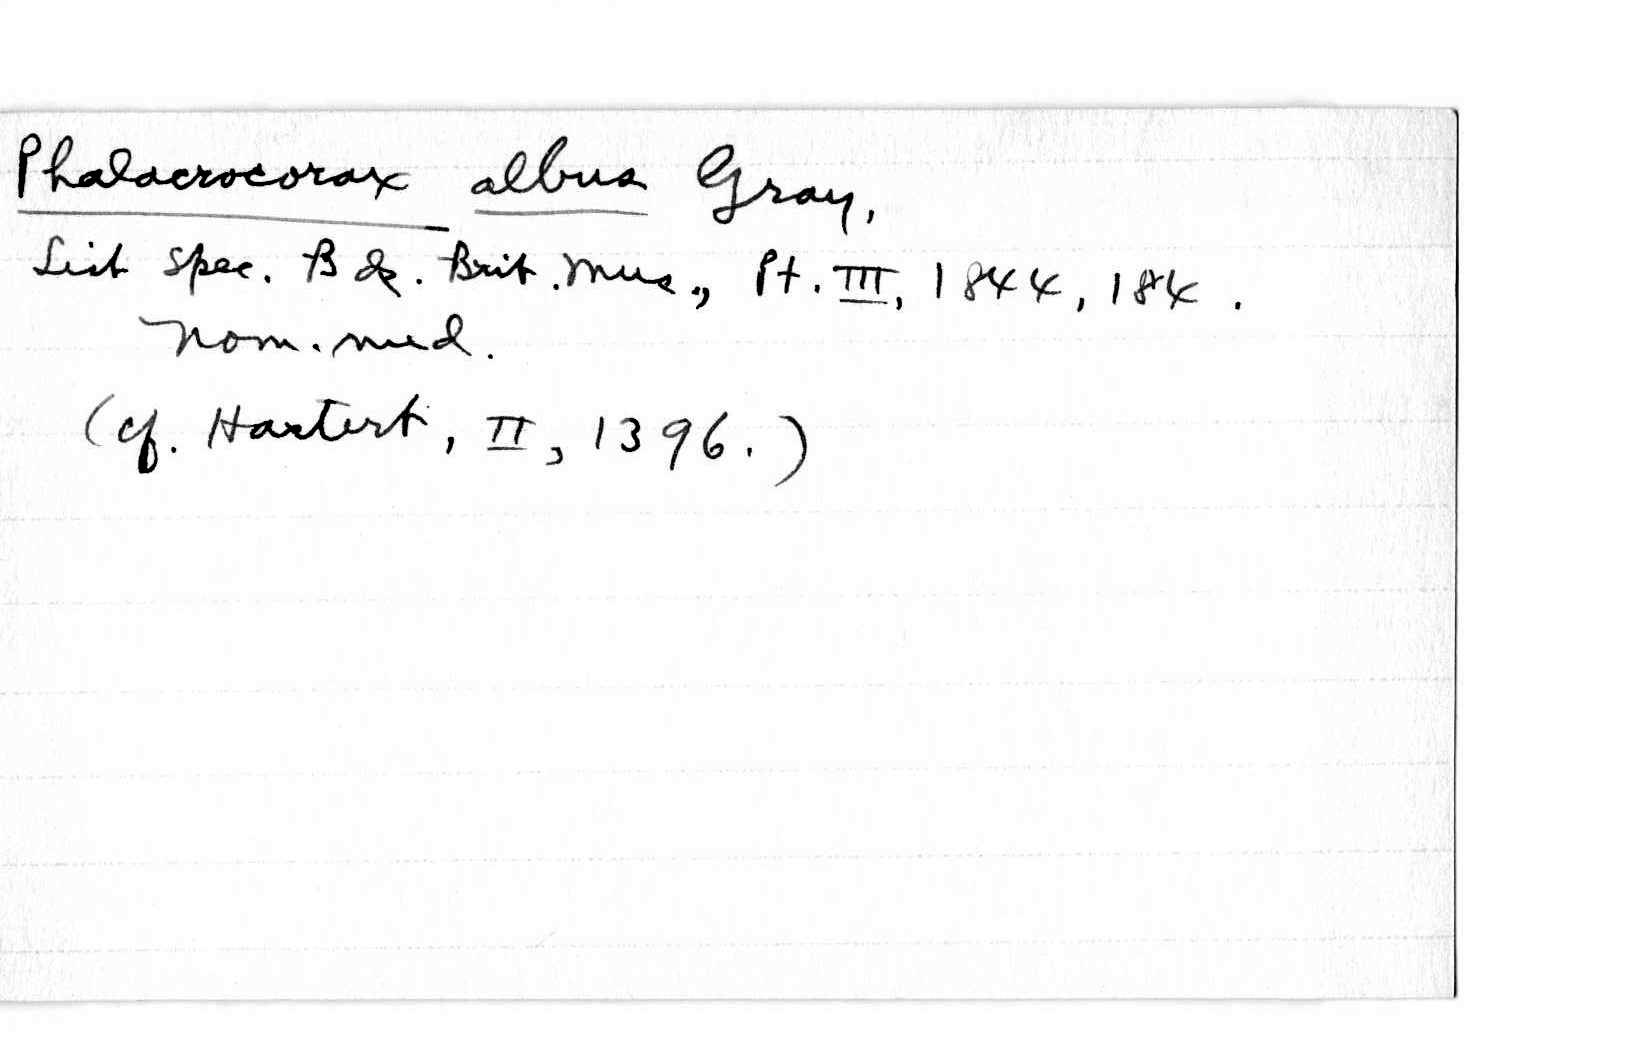 Phalacrocorax albus Gray,
List Spec. Bds. Brit. Mus., Pt. III, 1844, 184.
Nom. nud.
(cf. Hartert, II, 1396.)